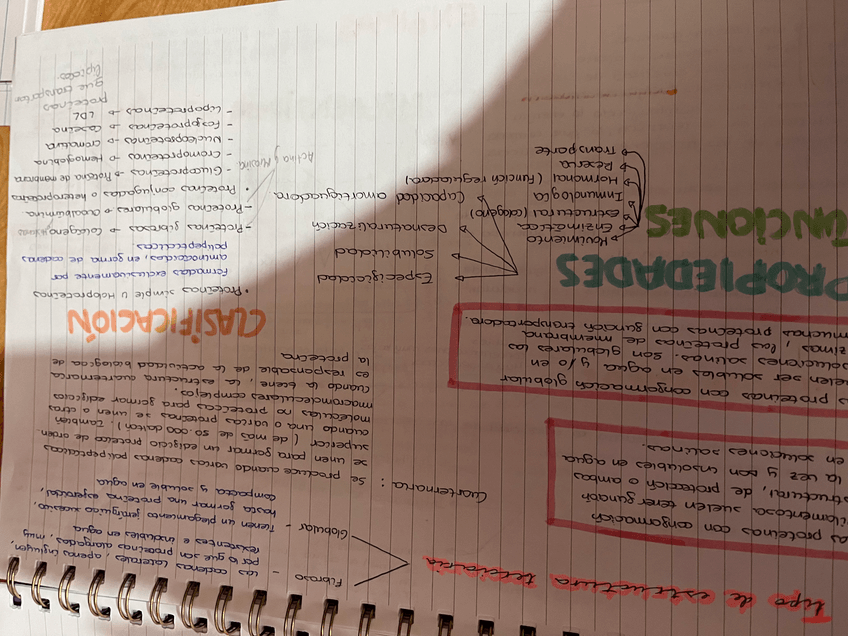 Tipo de estructura terciaria
Fibrosa - Las cadenas laterales, apenas influyen,
por lo que son proteínas alargadas, muy
resistentes e insolubles en agua
Globular - Tienen un plegamiento terciario
hasta formar una proteína esferoidal,
compacta y soluble en agua
as proteínas con conformación
filamentosa suelen tener función
structural, de protección o ambas
la vez y son insolubles en agua
en soluciones salinas.
s proteínas con conformación globular
uelen ser solubles en agua y/o en
soluciones salinas. son globulares las
zimas, las proteínas de membrana
muchas proteínas con función transportadora.
Cuarternaria: Se produce cuando varias cadenas polipeptídicas
se unen para formar un edificio proteico de orden
superior (de más de 50.000 dalton). También
cuando una o varias proteínas se unen a otras
moléculas no proteicas para formar edificios
macromoleculares complejos.
cuando la tiene, la estructura cuarternaria
es responsable de la actividad biológica de
la proteína
PROPIEDADES
Especificidad
Solubilidad
Desnaturalización
Capacidad amortiguadora
FUNCIONES
Movimiento
Enzimática
estructural (colágeno)
Inmunología
Hormonal (función reguladora)
Reserva
Transporte
CLASIFICACIÓN
• Proteínas simple u Holoproteínas
formadas exclusivamente por
aminoácidos, en forma de cadenas
polipeptídicas
- Proteínas fibrosas → Colágeno
- Proteínas globulares → Ovoalbúmina
Actina y Miosina
• Proteínas conjugadas o heteroproteínas
- Glucoproteínas → Proteína de membrana
- Cromoproteínas → Hemoglobina
- Nucleoproteínas → Cromatina
- Fosfoproteínas → Caseína
- Lipoproteínas → LDL
proteínas
que transportan
lípidos